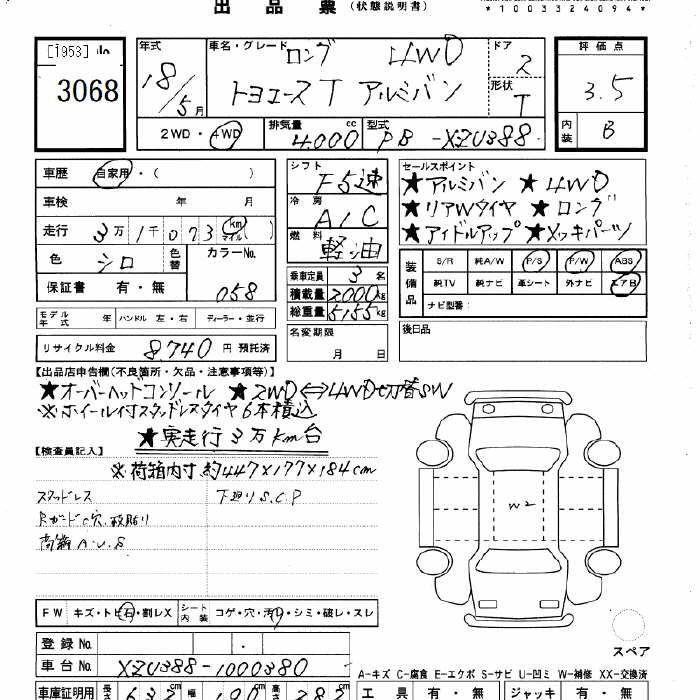 出品票 (状態説明書)
*1003324094*
[1953]
3068
年式 車名・グレード ロング 4WD ドア 2 評価点
18/5月 トヨエース T アルミバン 形状 T 3.5
2WD・4WD 排気量 4,000 cc 型式 PB-XZU388 内装 B
車歴 自家用・( )
車検 年 月
走行 3万1千073 km マイル ( )
色 シロ 色替 カラーNo.
保証書 有・無 058
シフト F5速
冷房 A/C
燃料 軽油
乗車定員 3名
積載量 2000kg
総重量 5155kg
セールスポイント
★アルミバン ★4WD
★リアWタイヤ ★ロング
★アイドルアップ ★メッキパーツ
装備品 S/R 純A/W P/S P/W ABS
純TV 純ナビ 革シート 外ナビ エアB
ナビ型番:
モデル年式 年 ハンドル 左・右 ディーラー・並行
名変期限
月 日
後日品
リサイクル料金 8,740円 預託済
【出品店申告欄(不良箇所・欠品・注意事項等)】
★オーバーヘットコンソール ★2WD⇔4WD切替SW
※ホイール付スタッドレスタイヤ6本積込
★実走行3万km台
【検査員記入】
※荷箱内寸 約447×177×184cm
スタッドレス 下廻りS.C.P
RガードC穴、
A.U.S
W2
FW キズ・トビ石・割レX シート内装 コゲ・穴・汚レ・シミ・破レ・スレ
登録No.
車台No. XZU388-1000380
スペア
A-キズ C-腐食 E-エクボ S-サビ U-凹ミ W-補修 XX-交換済
車庫証明用 長さ 632cm 幅 190cm 高さ 282cm 工具 有・無 ジャッキ 有・無